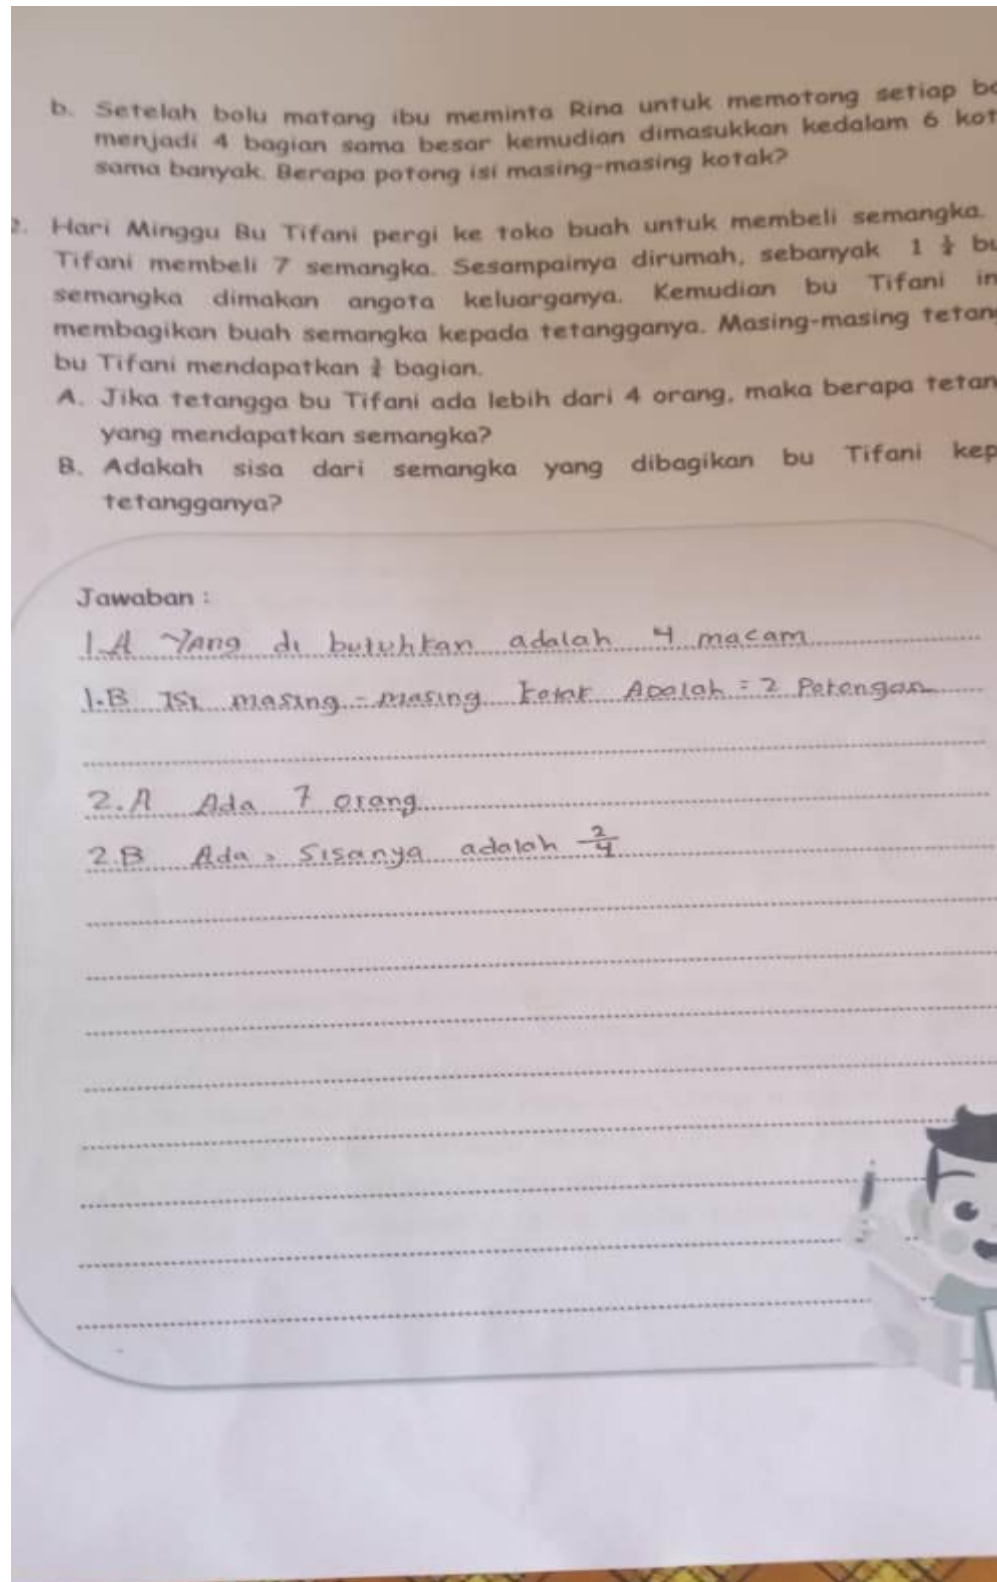 b. Setelah bolu matang ibu meminta Rina untuk memotong setiap
menjadi 4 bagian sama besar kemudian dimasukkan kedalam 6
sama banyak. Berapa potong isi masing-masing kotak?
2. Hari Minggu Bu Tifani pergi ke toko buah untuk membeli semangka.
Tifani membeli 7 semangka. Sesampainya dirumah, sebanyak 1
semangka dimakan angota keluarganya. Kemudian bu Tifani
membagikan buah semangka kepada tetangganya. Masing-masing
bu Tifani mendapatkan bagian.
A. Jika tetangga bu Tifani ada lebih dari 4 orang, maka berapa
yang mendapatkan semangka?
B. Adakah sisa dari semangka yang dibagikan bu Tifani
tetangganya?
Jawaban :
1.A Yang di butuhkan adalah 4 macam
1.B Isi masing-masing kotak Adalah = 2 Potongan
2.A Ada 7 orang
2.B Ada, Sisanya adalah 2/4